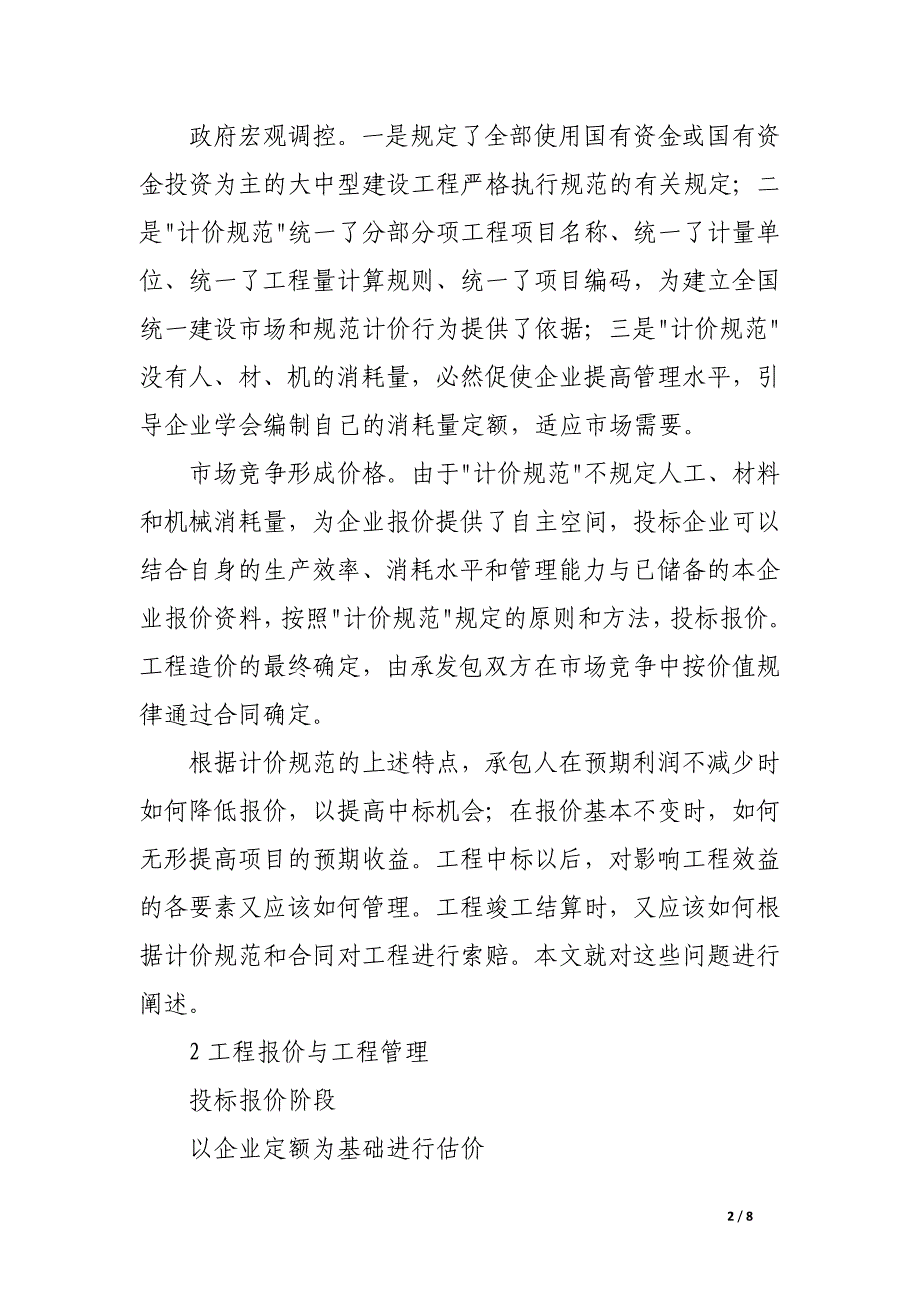 政府宏观调控。一是规定了全部使用国有资金或国有资
金投资为主的大中型建设工程严格执行规范的有关规定；二
是"计价规范"统一了分部分项工程项目名称、统一了计量单
位、统一了工程量计算规则、统一了项目编码，为建立全国
统一建设市场和规范计价行为提供了依据；三是"计价规范"
没有人、材、机的消耗量，必然促使企业提高管理水平，引
导企业学会编制自己的消耗量定额，适应市场需要。
市场竞争形成价格。由于"计价规范"不规定人工、材料
和机械消耗量，为企业报价提供了自主空间，投标企业可以
结合自身的生产效率、消耗水平和管理能力与已储备的本企
业报价资料，按照"计价规范"规定的原则和方法，投标报价。
工程造价的最终确定，由承发包双方在市场竞争中按价值规
律通过合同确定。
根据计价规范的上述特点，承包人在预期利润不减少时
如何降低报价，以提高中标机会；在报价基本不变时，如何
无形提高项目的预期收益。工程中标以后，对影响工程效益
的各要素又应该如何管理。工程竣工结算时，又应该如何根
据计价规范和合同对工程进行索赔。本文就对这些问题进行
阐述。
2 工程报价与工程管理
投标报价阶段
以企业定额为基础进行估价
2 / 8